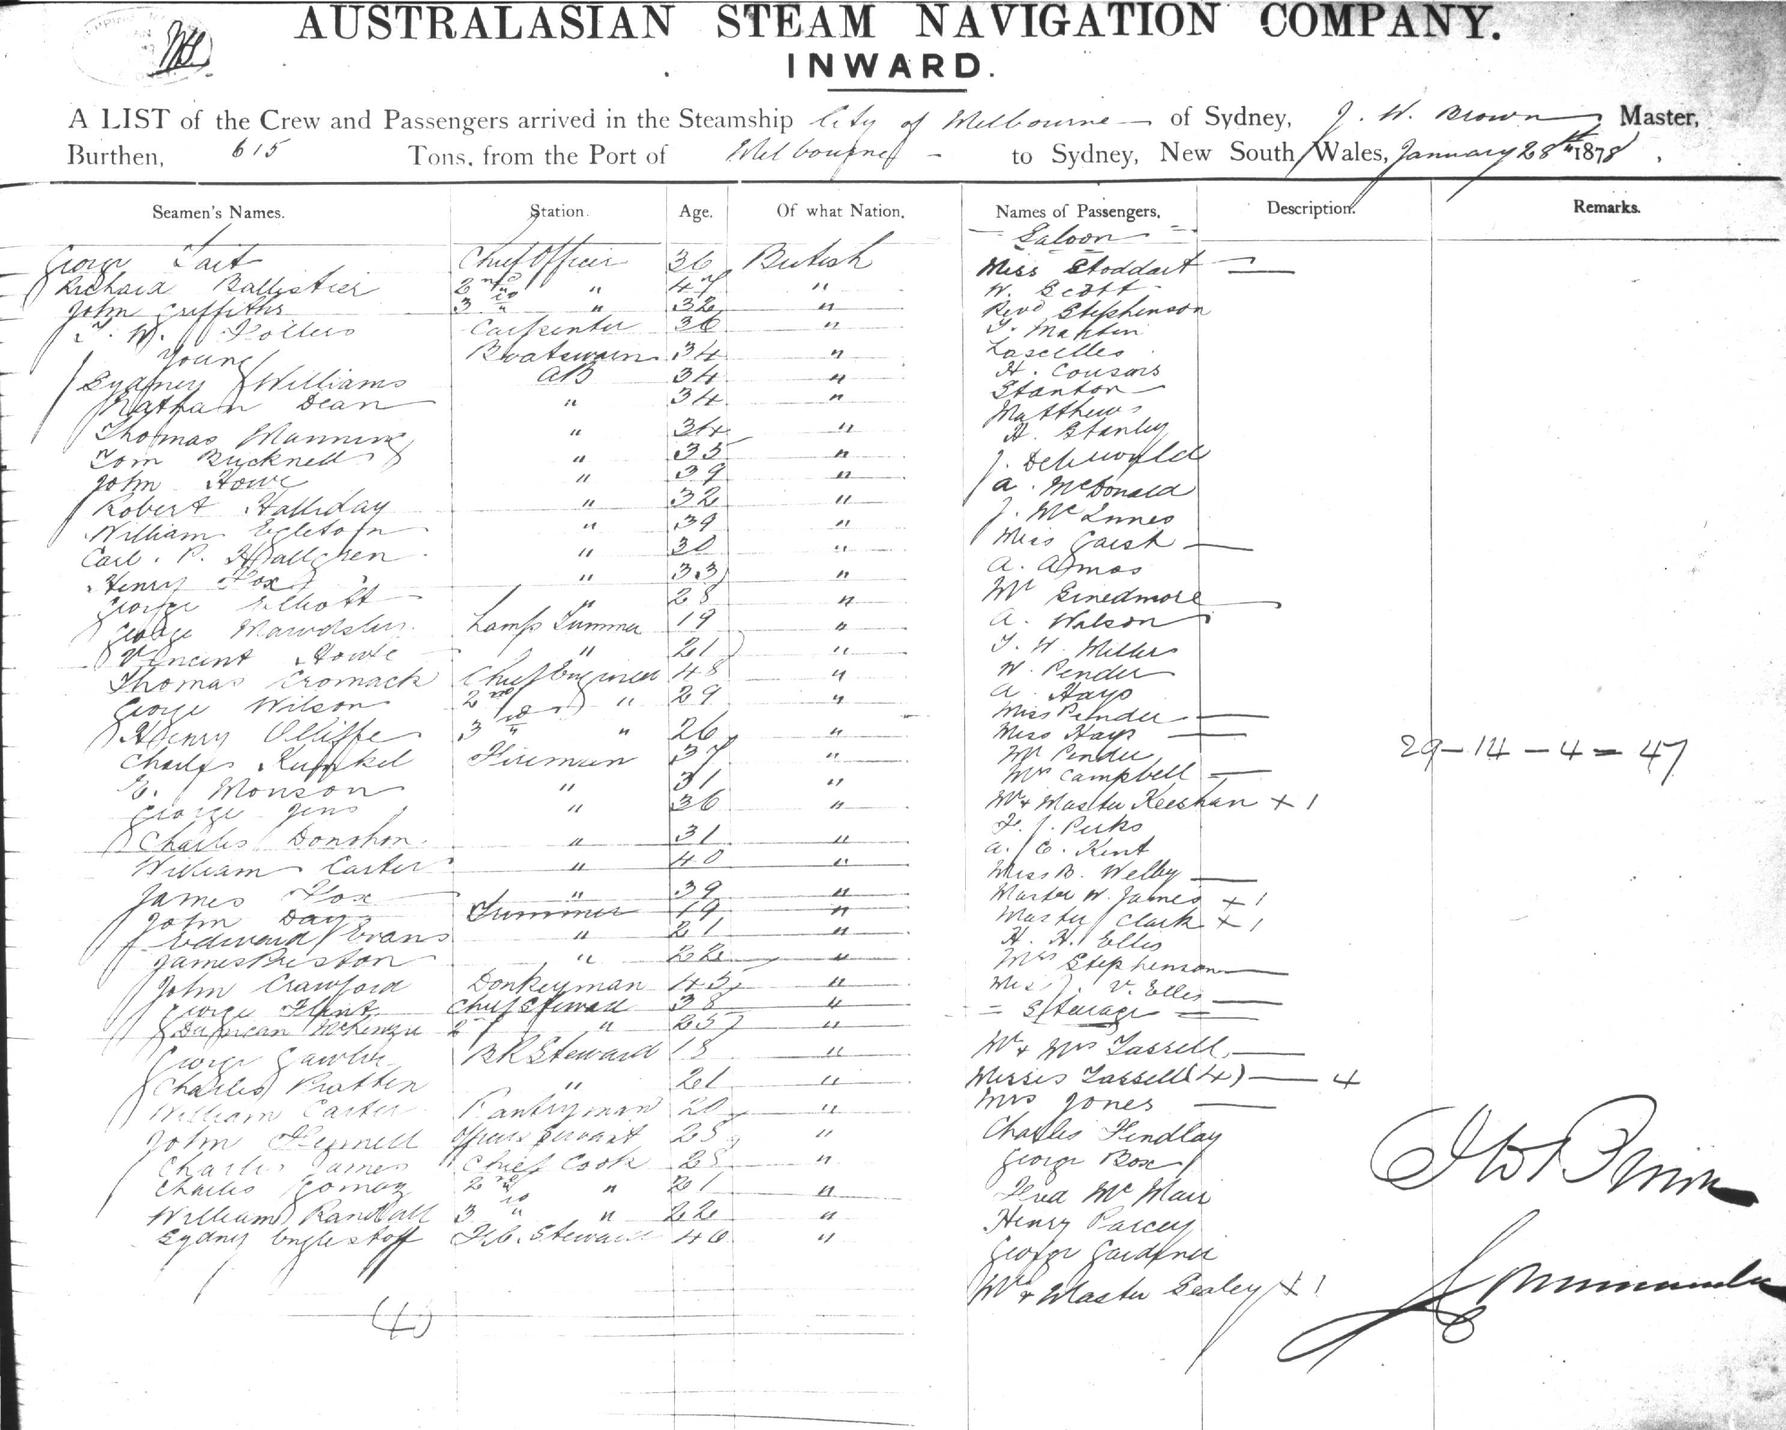 AUSTRALASIAN STEAM NAVIGATION COMPANY.
INWARD.
A LIST of the Crew and Passengers arrived in the Steamship City of Melbourne of Sydney, J. W. Brown Master,
Burthen, 615 Tons, from the Port of Melbourne to Sydney, New South Wales, January 28th 1878.
Seamen's Names. Station. Age. Of what Nation. Names of Passengers. Description. Remarks.
= Saloon =
George Tait Chief Officer 36 British Miss Stoddart —
Richard Ballistier 2nd " 47 " W. Scott
John Griffiths 3rd " 32 " Revd Stephenson
T. W. Carpenter 36 " T. Martin
Young Boatswain 34 " Lascelles
Sydney Williams AB 34 " H. Cousins
Nathan Dean " 34 " Stanton
Matthews
Thomas Manning " 34 " H. Stanley
Tom Bucknell " 35 " J.
John Howe " 39 " A. McDonald
Robert Halliday " 32 " J. McInnes
William Egleton " 39 " Miss —
Carl. P. Hallgren " 30 " A. Amos
Henry Fox " 33 " —
George Elliott " 28 " A. Watson
George Mawdsley Lamp Trimmer 19 " T. W. Miller
Vincent Howe " 21 " W. Pender
Thomas Cromack Chief Engineer 48 " A. Hays
George Wilson 2nd " 29 " Miss Pender —
Henry Olliffe 3rd " 26 " Miss Hays —
Charles Kunkel Fireman 37 " Mr Pender 29 — 14 — 4 = 47
E. Monson " 31 " Mrs Campbell —
George Jens " 36 " Mr & Master Keeshan + 1
F. J. Perks
Charles Donohon " 31 " A. C. Kent
William Carter " 40 " Miss B. Welby —
James Fox " 39 " Master W. James + 1
John Day Trimmer 19 " Master Clark + 1
Edward Evans " 21 " H. H. Ellis
James Preston " 22 " Mrs Stephenson —
John Crawford Donkeyman 43 " V. Ellis —
George Flint Chief Steward 38 " = Steerage =
Duncan McKenzie 2nd " 25 "
George Gawler BR Steward 18 " Mr & Mrs Tassell —
Charles Pratten " 21 " Misses Tassell (4) — 4
William Carter Pantryman 20 " Mrs Jones —
John Officers Servant 25 " Charles Findlay
Charles James Chief Cook 28 " George Box
Charles 2nd " 21 " Fred
William Randall 3rd " 22 " Henry
Sydney F.C. Steward 46 " George Gardner
Mr & Master Sealey + 1